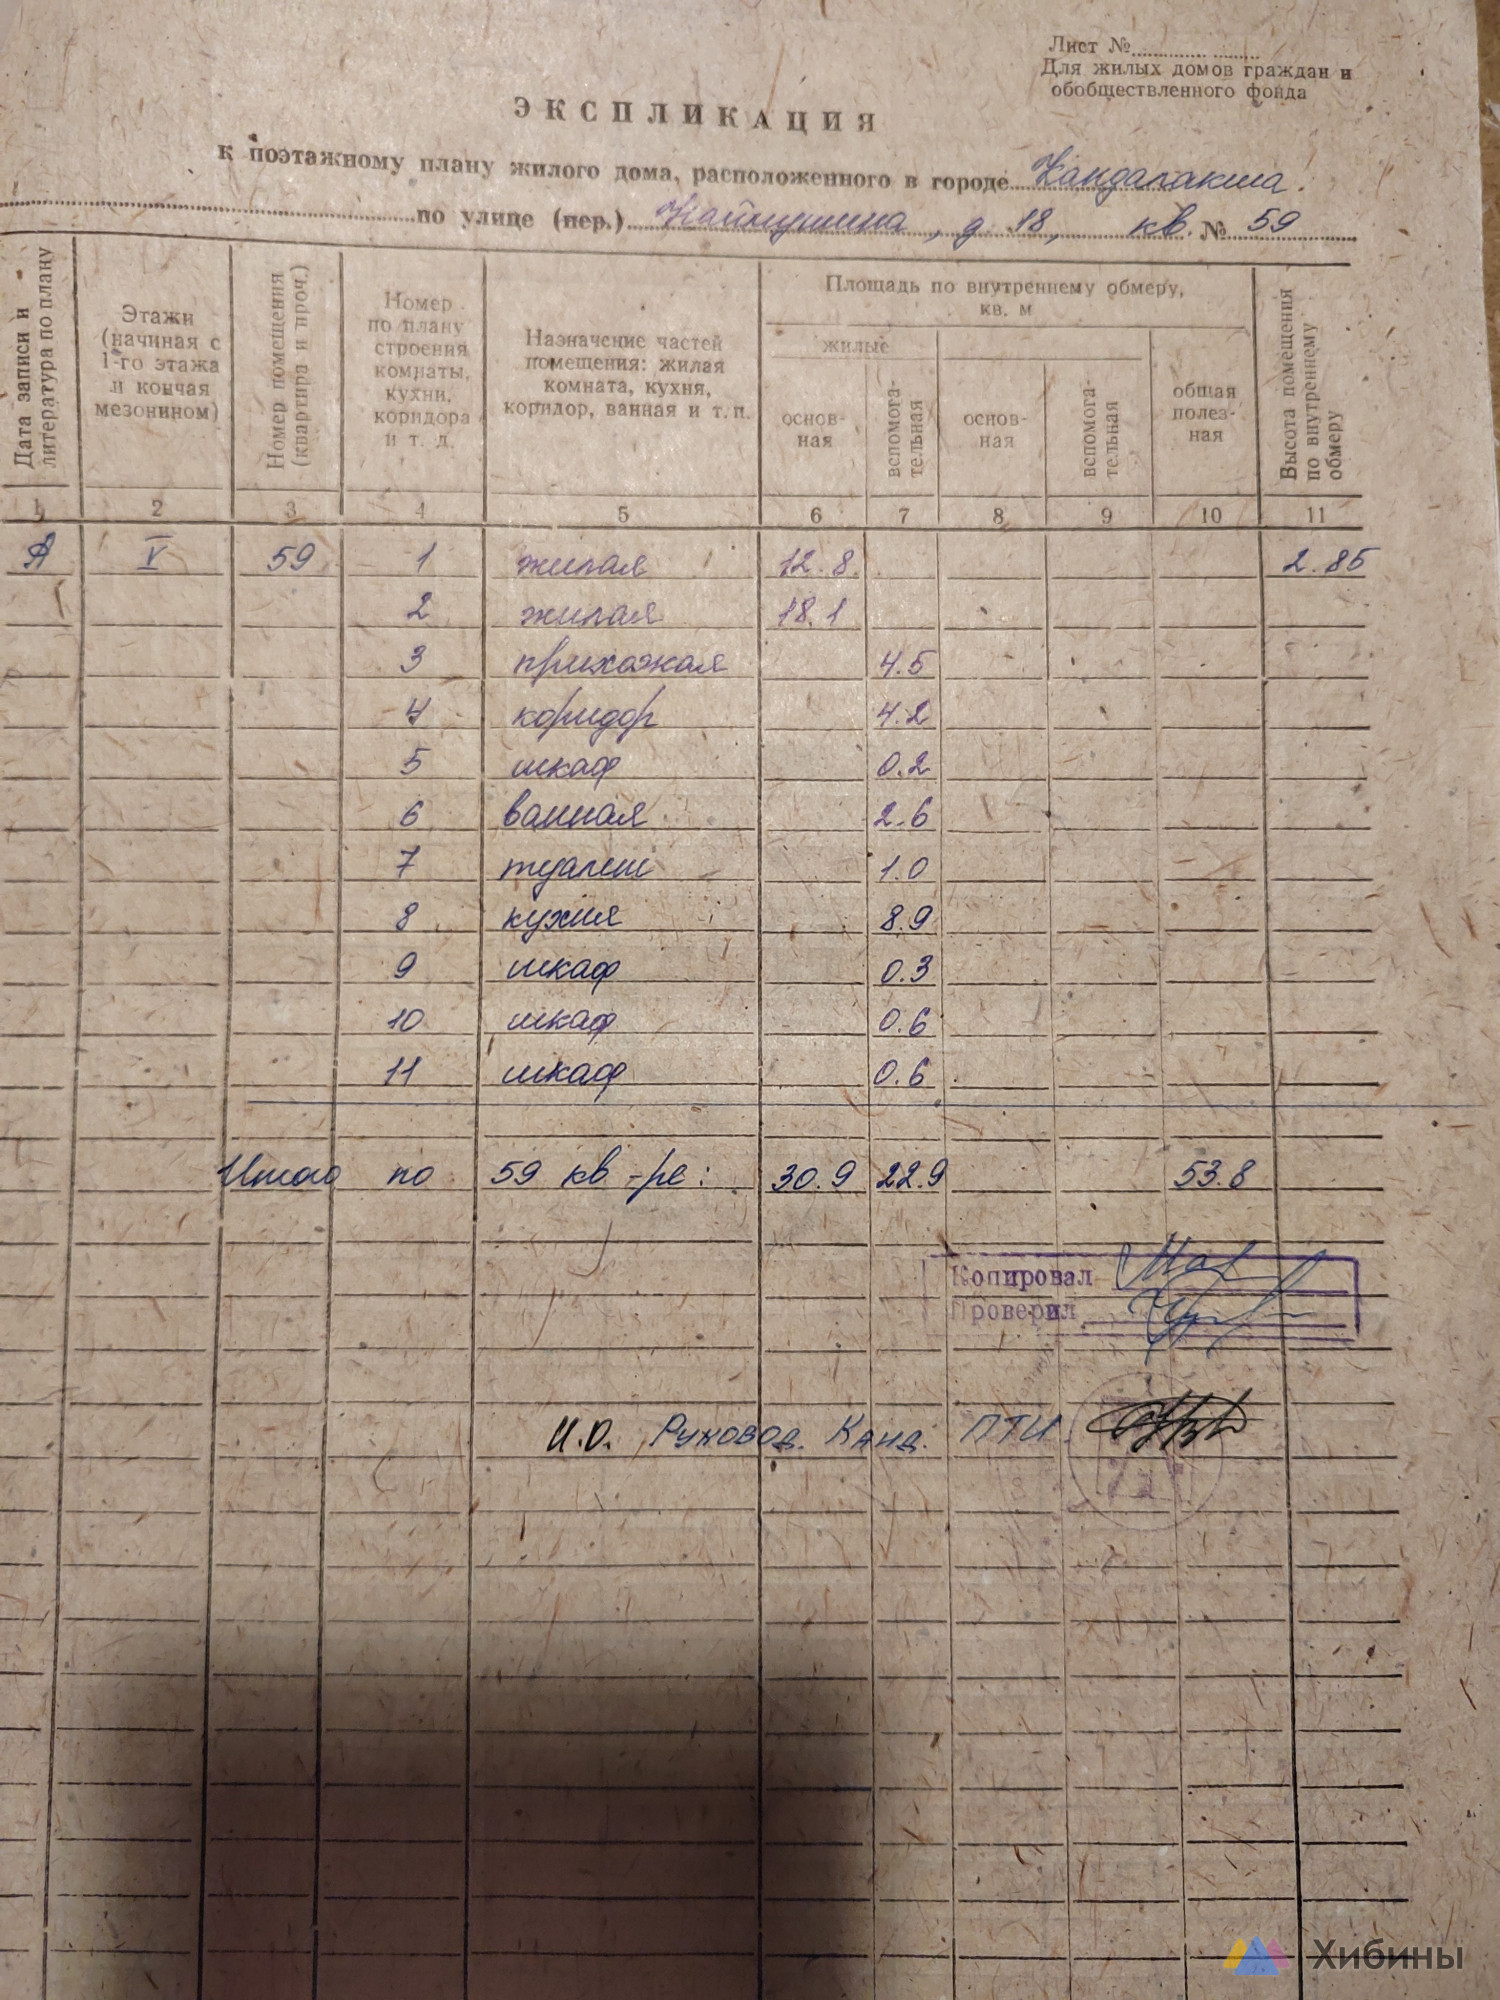 Лист №
Для жилых домов граждан и
обобществленного фонда
ЭКСПЛИКАЦИЯ
к поэтажному плану жилого дома, расположенного в городе Кандалакша.
по улице (пер.) Наймушина, д. 18, кв. № 59
Дата записи и литература по плану
Этажи (начиная с 1-го этажа и кончая мезонином)
Номер помещения (квартира и проч.)
Номер по плану строения комнаты, кухни, коридора и т. д.
Назначение частей помещения: жилая комната, кухня, коридор, ванная и т. п.
Площадь по внутреннему обмеру, кв. м
жилые
основ-ная
вспомога-тельная
основ-ная
вспомога-тельная
общая полез-ная
Высота помещения по внутреннему обмеру
1 2 3 4 5 6 7 8 9 10 11
А V 59 1 жилая 12.8 2.85
2 жилая 18.1
3 прихожая 4.5
4 коридор 4.2
5 шкаф 0.2
6 ванная 2.6
7 туалет 1.0
8 кухня 8.9
9 шкаф 0.3
10 шкаф 0.6
11 шкаф 0.6
Итого по 59 кв-ре: 30.9 22.9 53.8
Копировал
Проверил
И.О. Руковод. Канд. ПТИ.
Хибины